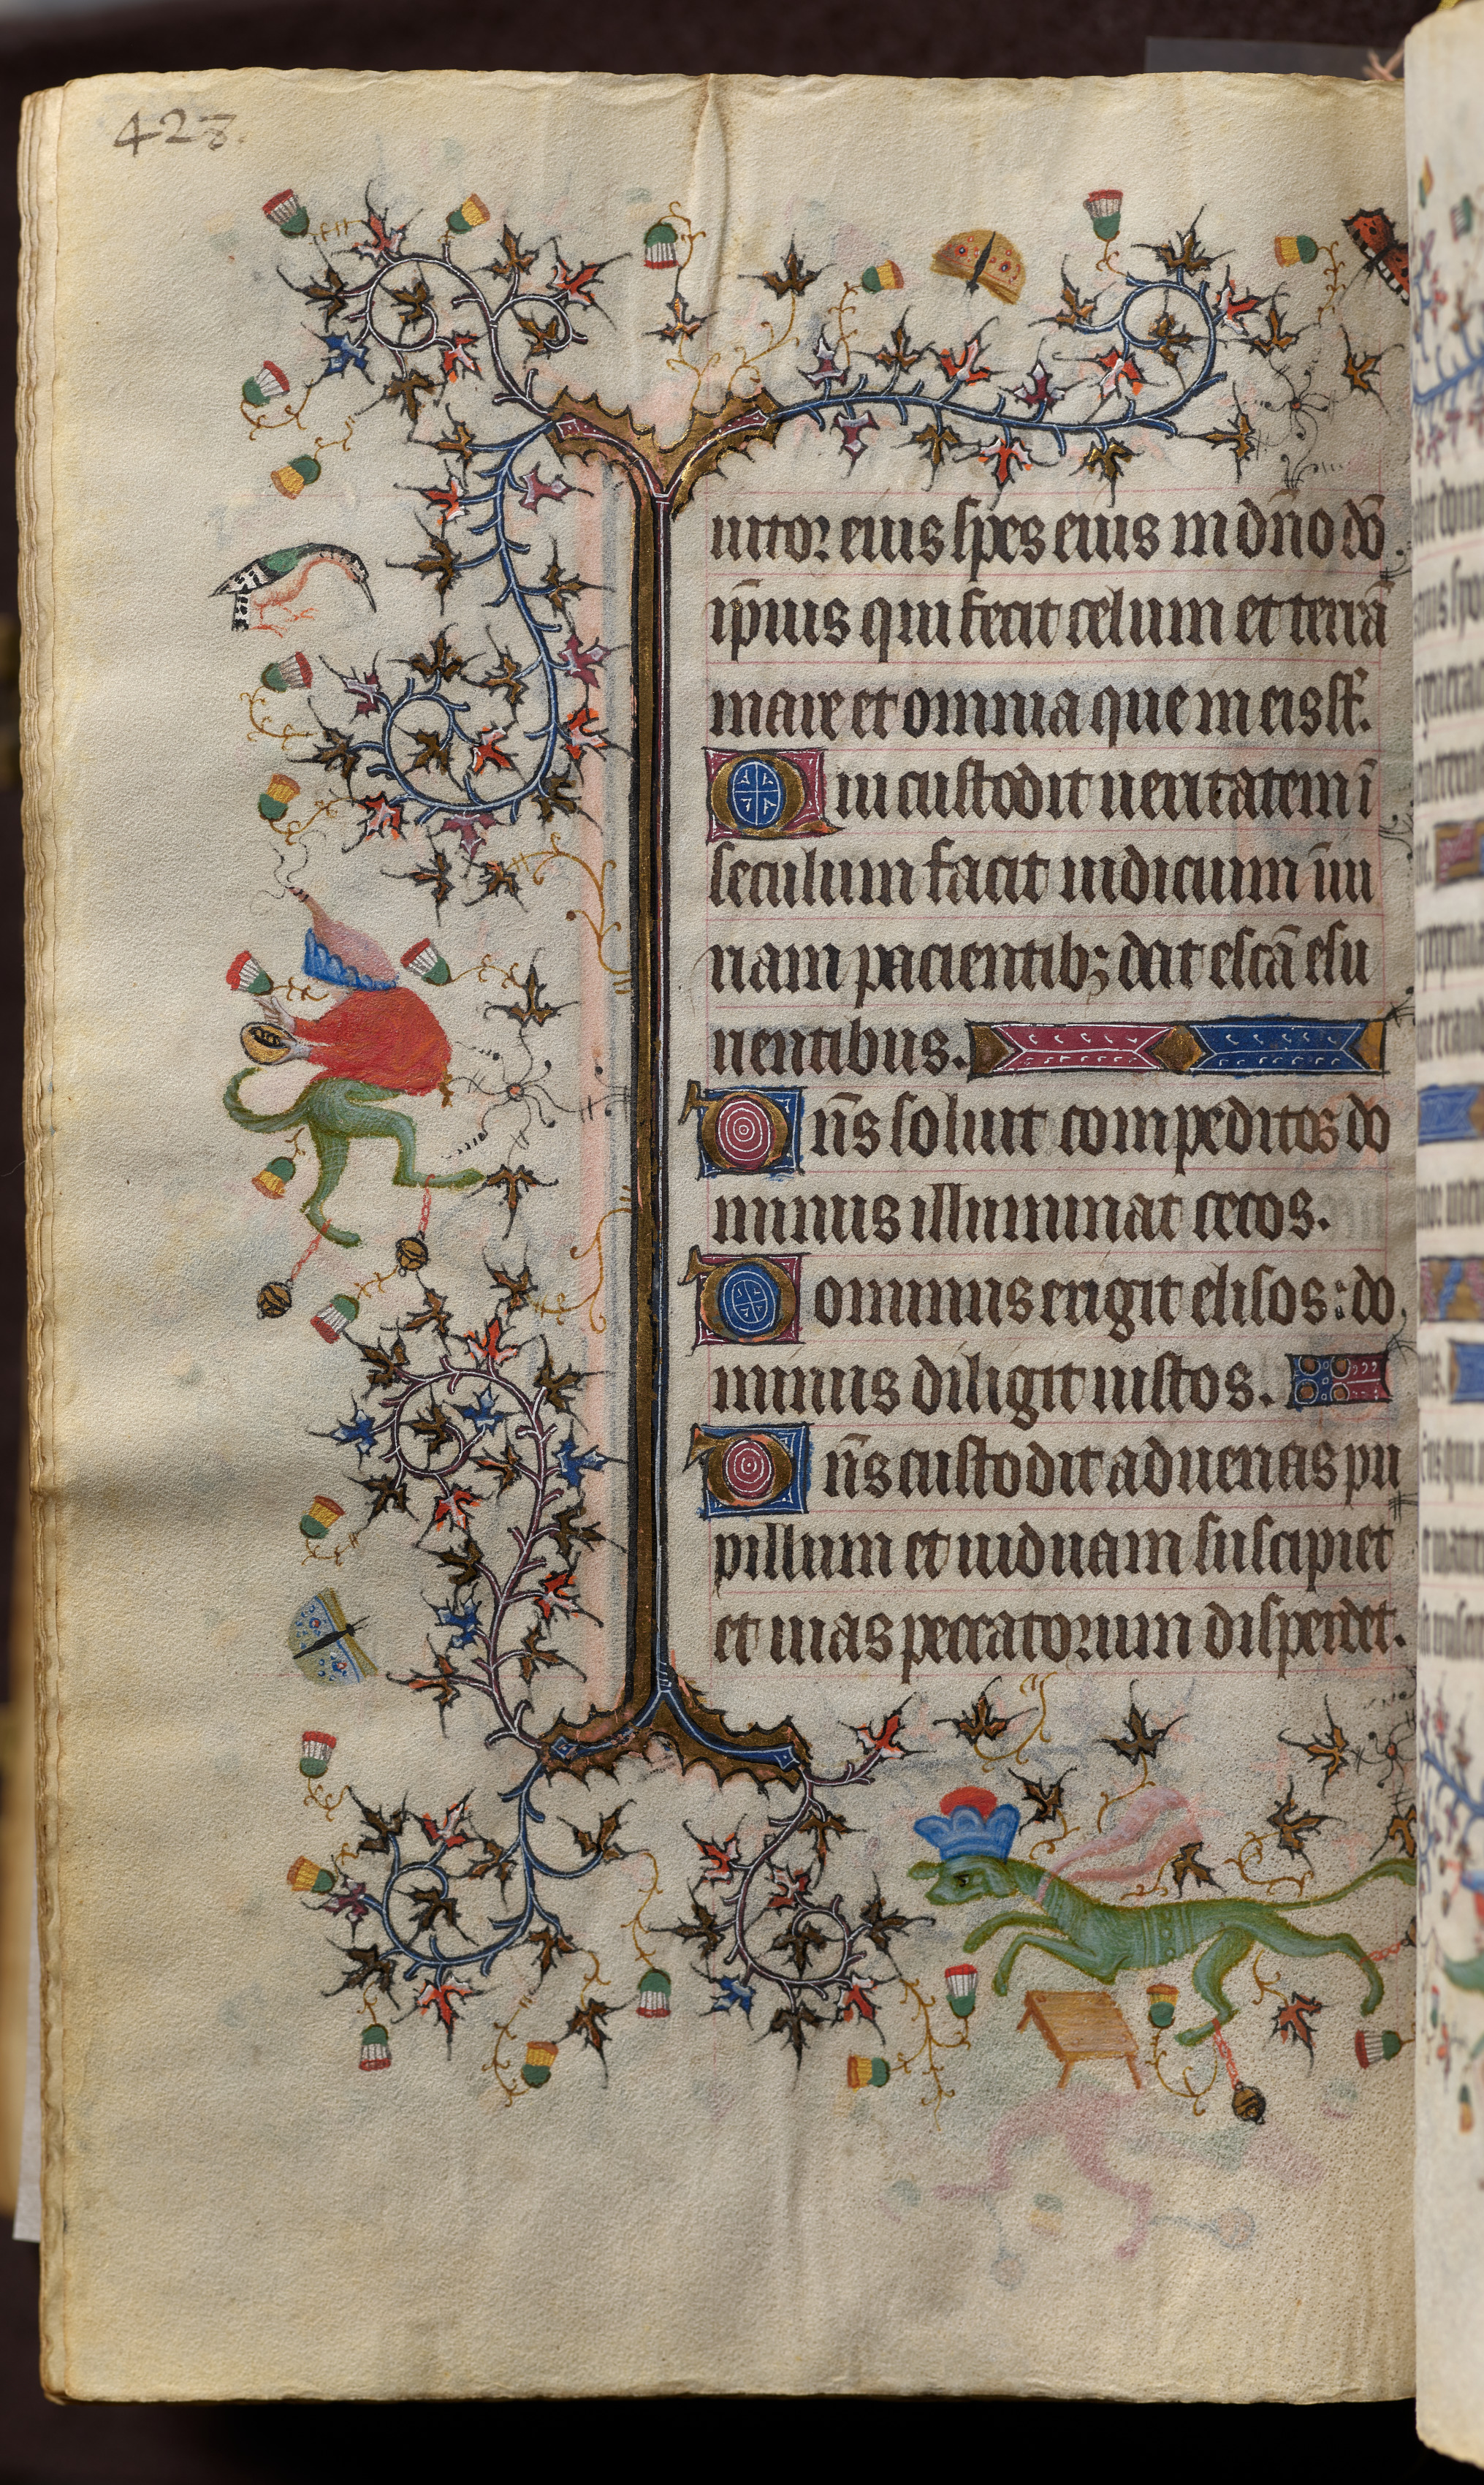 428.
iutor eius spes eius in dño dō
ip̄ius qui fecit celum et terrā
mare et omnia que in eis st̄.
Qui custodit ueritatem ī
seculum facit iudicium iniu
riam pacientibꝫ dat escā esu
rientibus.
Dn̄s soluit compeditos do
minus illuminat cecos.
Dominus erigit elisos: do
minus diligit iustos.
Dn̄s custodit aduenas pu
pillum et uiduam suscipiet
et uias peccatorum disperdet.